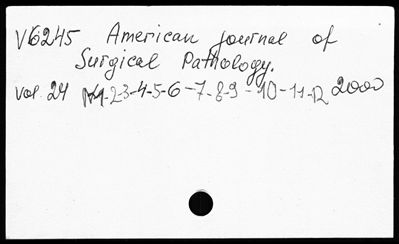 V6245 American journal of
Surgical Pathology.
Vol 24 N1-2-3-4-5-6-7-8-9-10-11-12 2000